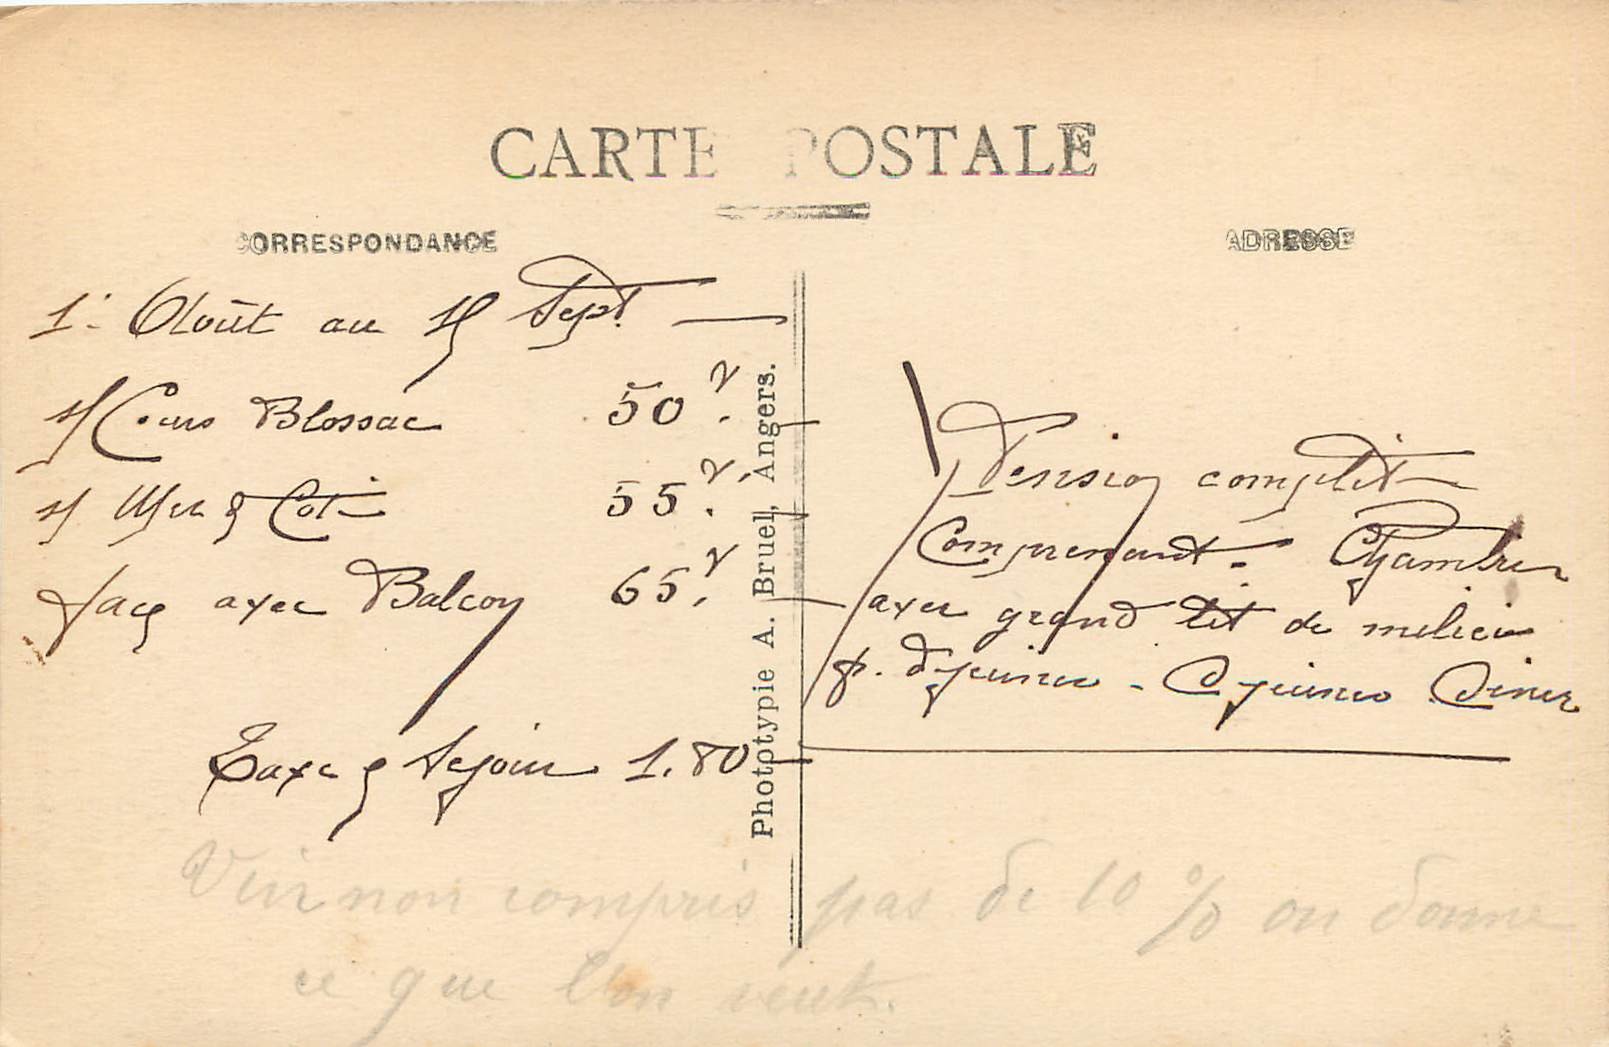 CARTE POSTALE
CORRESPONDANCE
ADRESSE
1er Août au 15 Sept.
s/ Cours Blossac 50
s/ Mer & Coté 55
face avec Balcon 65
Taxe Sejour 1.80
Phototypie A. Bruel, Angers.
Pension complète
Comprenant. Chambre
avec grand lit de milieu
p. dejeuner - Dejeuner Diner
Vin non compris pas de 10 % on donne
ce que l'on veut.